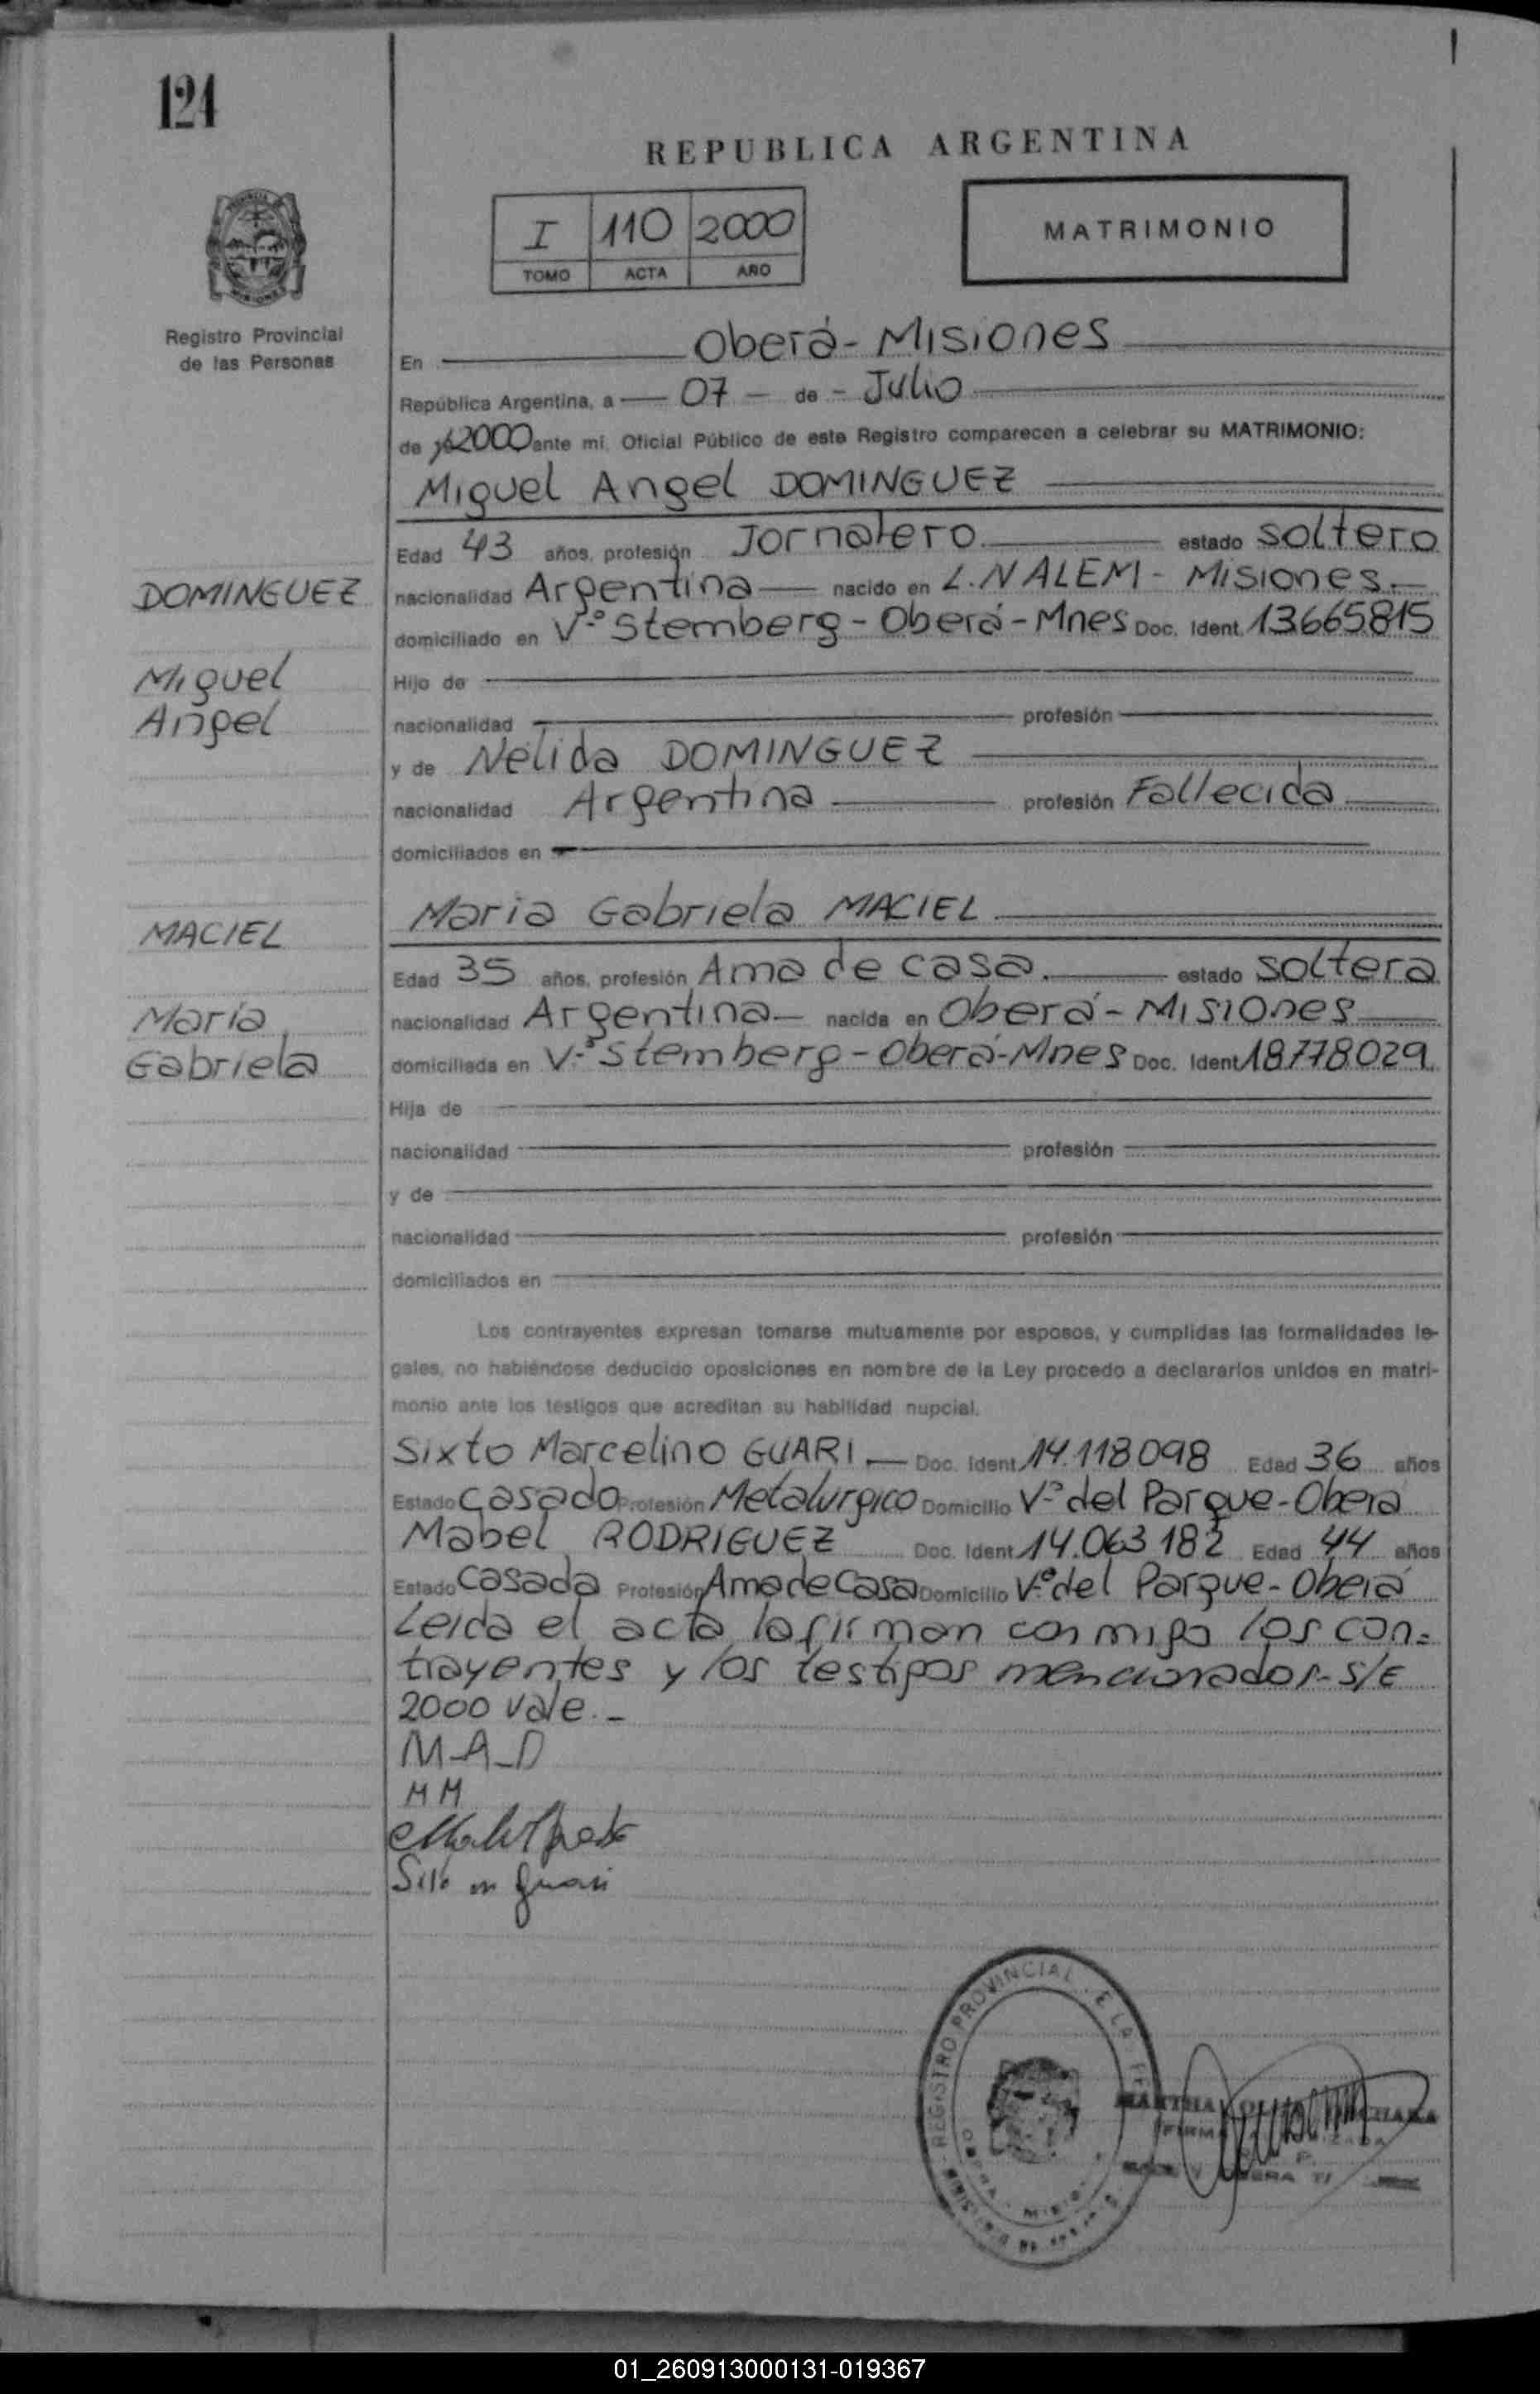 124
REPUBLICA ARGENTINA
I 110 2000
TOMO ACTA AÑO
MATRIMONIO
Registro Provincial
de las Personas
En Oberá - Misiones
República Argentina, a 07 - de - Julio
de 2000 ante mí, Oficial Público de este Registro comparecen a celebrar su MATRIMONIO:
Miguel Angel DOMINGUEZ
Edad 43 años, profesión Jornalero. estado soltero
DOMINGUEZ
nacionalidad Argentina nacido en L.N ALEM - Misiones.
domiciliado en V.º Stemberg - Oberá - Mnes Doc. Ident. 13.665.815
Miguel
Angel
Hijo de
nacionalidad profesión
y de Nélida DOMINGUEZ
nacionalidad Argentina profesión Fallecida
domiciliados en
MACIEL
Maria Gabriela MACIEL
Edad 35 años, profesión Ama de casa. estado soltera
María
Gabriela
nacionalidad Argentina nacida en Oberá - Misiones
domiciliada en V.ª Stemberg - Oberá - Mnes Doc. Ident 18.778.029
Hija de
nacionalidad profesión
y de
nacionalidad profesión
domiciliados en
Los contrayentes expresan tomarse mutuamente por esposos, y cumplidas las formalidades le-
gales, no habiéndose deducido oposiciones en nombre de la Ley procedo a declararlos unidos en matri-
monio ante los testigos que acreditan su habilidad nupcial.
Sixto Marcelino GUARI Doc. Ident 14.118.098 Edad 36 años
Estado Casado Profesión Metalurgico Domicilio V.ª del Parque - Oberá
Mabel RODRIGUEZ Doc. Ident 14.063.182 Edad 44 años
Estado Casada Profesión Ama de Casa Domicilio V.º del Parque - Oberá
Leida el acta la firman conmigo los con-
trayentes y los testigos mencionados.- S/E
2000 Vale.-
M-A-D
M M
REGISTRO PROVINCIAL
01_260913000131-019367